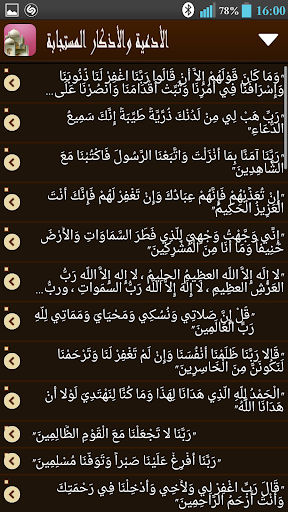 78% 16:00
الأدعية والأذكار المستجابة
"وَمَا كَانَ قَوْلَهُمْ إِلاَّ أَنْ قَالُوا رَبَّنَا اغْفِرْ لَنَا ذُنُوبَنَا
وَإِسْرَافَنَا فِي أَمْرِنَا وَثَبِّتْ أَقْدَامَنَا وَانْصُرْنَا عَلَى...
"رَبِّ هَبْ لِي مِنْ لَدُنْكَ ذُرِّيَّةً طَيِّبَةً إِنَّكَ سَمِيعُ
الدُّعَاءِ"
"رَبَّنَا آمَنَّا بِمَا أَنْزَلْتَ وَاتَّبَعْنَا الرَّسُولَ فَاكْتُبْنَا مَعَ
الشَّاهِدِينَ"
"إِنْ تُعَذِّبْهُمْ فَإِنَّهُمْ عِبَادُكَ وَإِنْ تَغْفِرْ لَهُمْ فَإِنَّكَ أَنْتَ
الْعَزِيزُ الْحَكِيمُ"
"إِنِّي وَجَّهْتُ وَجْهِيَ لِلَّذِي فَطَرَ السَّمَاوَاتِ وَالأَرْضَ
حَنِيفًا وَمَا أَنَا مِنَ الْمُشْرِكِينَ"
"لا إله إلاَّ اللَّه العظيمُ الحليمُ ، لا إله إلاَّ اللَّه رَبُّ
العَرْشِ العظيمِ ، لا إله إلاَّ اللَّه رَبُّ السَّمواتِ ، وربُّ...
"قُلْ إِنَّ صَلاتِي وَنُسُكِي وَمَحْيَايَ وَمَمَاتِي لِلَّهِ
رَبِّ الْعَالَمِينَ"
"قَالا رَبَّنَا ظَلَمْنَا أَنْفُسَنَا وَإِنْ لَمْ تَغْفِرْ لَنَا وَتَرْحَمْنَا
لَنَكُونَنَّ مِنَ الْخَاسِرِينَ"
"الْحَمْدُ لِلَّهِ الَّذِي هَدَانَا لِهَذَا وَمَا كُنَّا لِنَهْتَدِيَ لَوْلا أَنْ
هَدَانَا اللَّهُ"
"رَبَّنَا لا تَجْعَلْنَا مَعَ الْقَوْمِ الظَّالِمِينَ"
"رَبَّنَا أَفْرِغْ عَلَيْنَا صَبْراً وَتَوَفَّنَا مُسْلِمِينَ"
"قَالَ رَبِّ اغْفِرْ لِي وَلأَخِي وَأَدْخِلْنَا فِي رَحْمَتِكَ
وَأَنْتَ أَرْحَمُ الرَّاحِمِينَ"